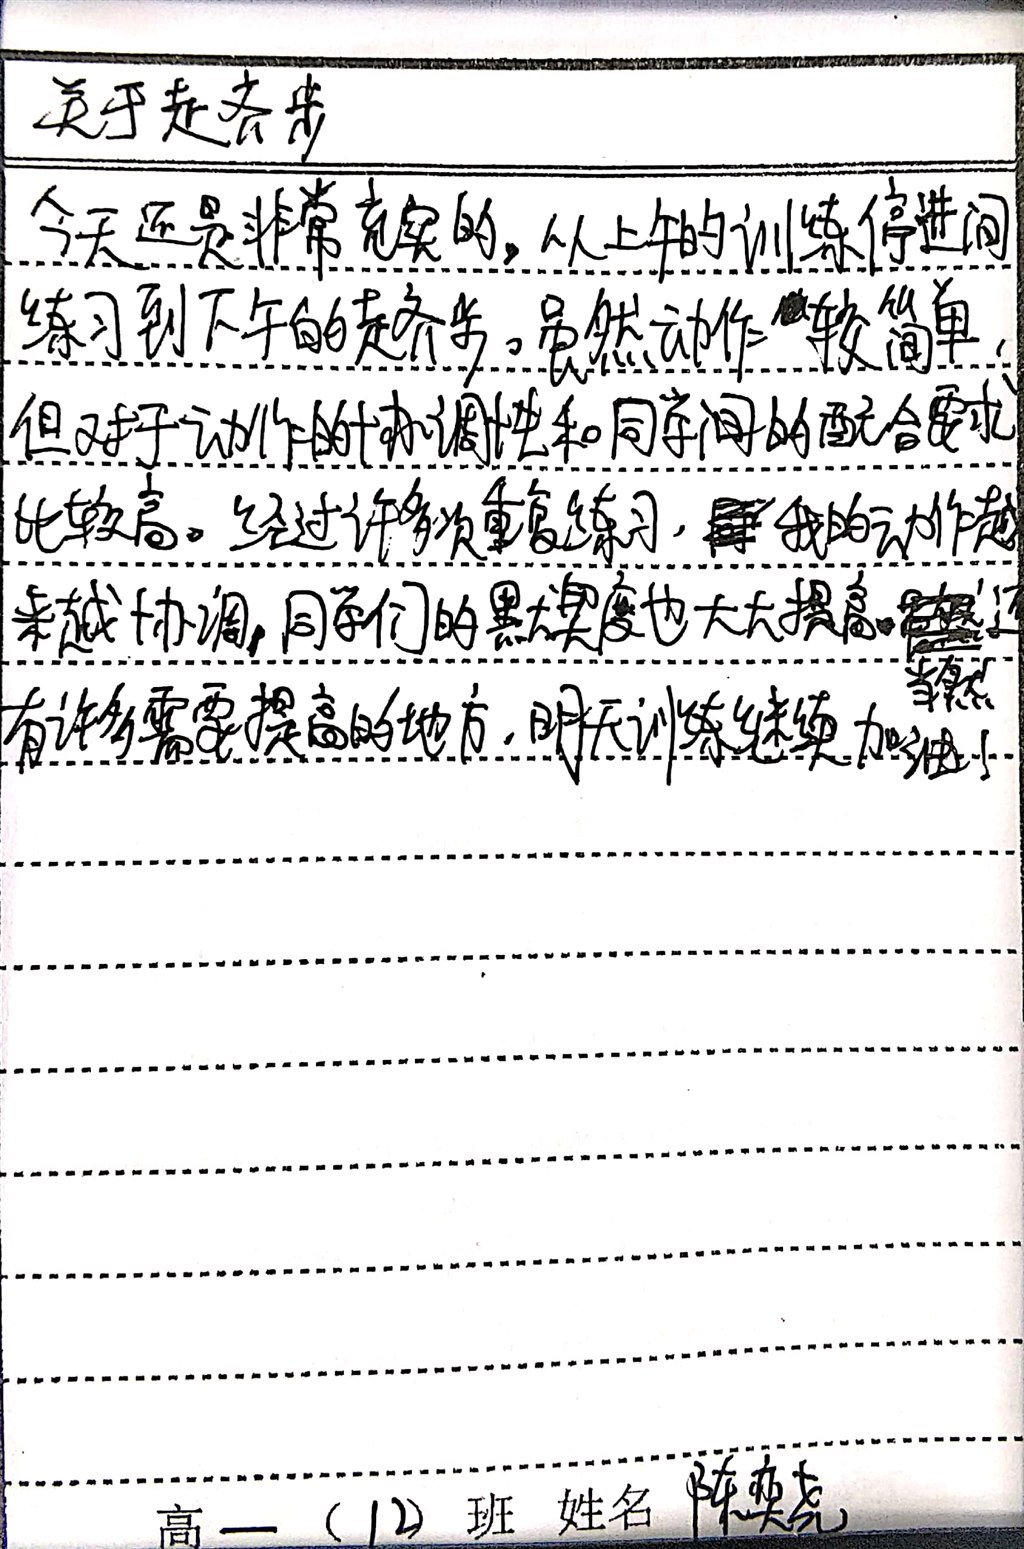 关于走齐步
今天还是非常充实的。从上午的训练停进间
练习到下午的走齐步。虽然动作较简单，
但对于动作的协调性和同学间的配合要求
比较高。经过许多次重复练习，我的动作越
来越协调，同学们的默契度也大大提高。当然还
有许多需要提高的地方，明天训练继续加油！
高一（12）班 姓名 陈奕尧